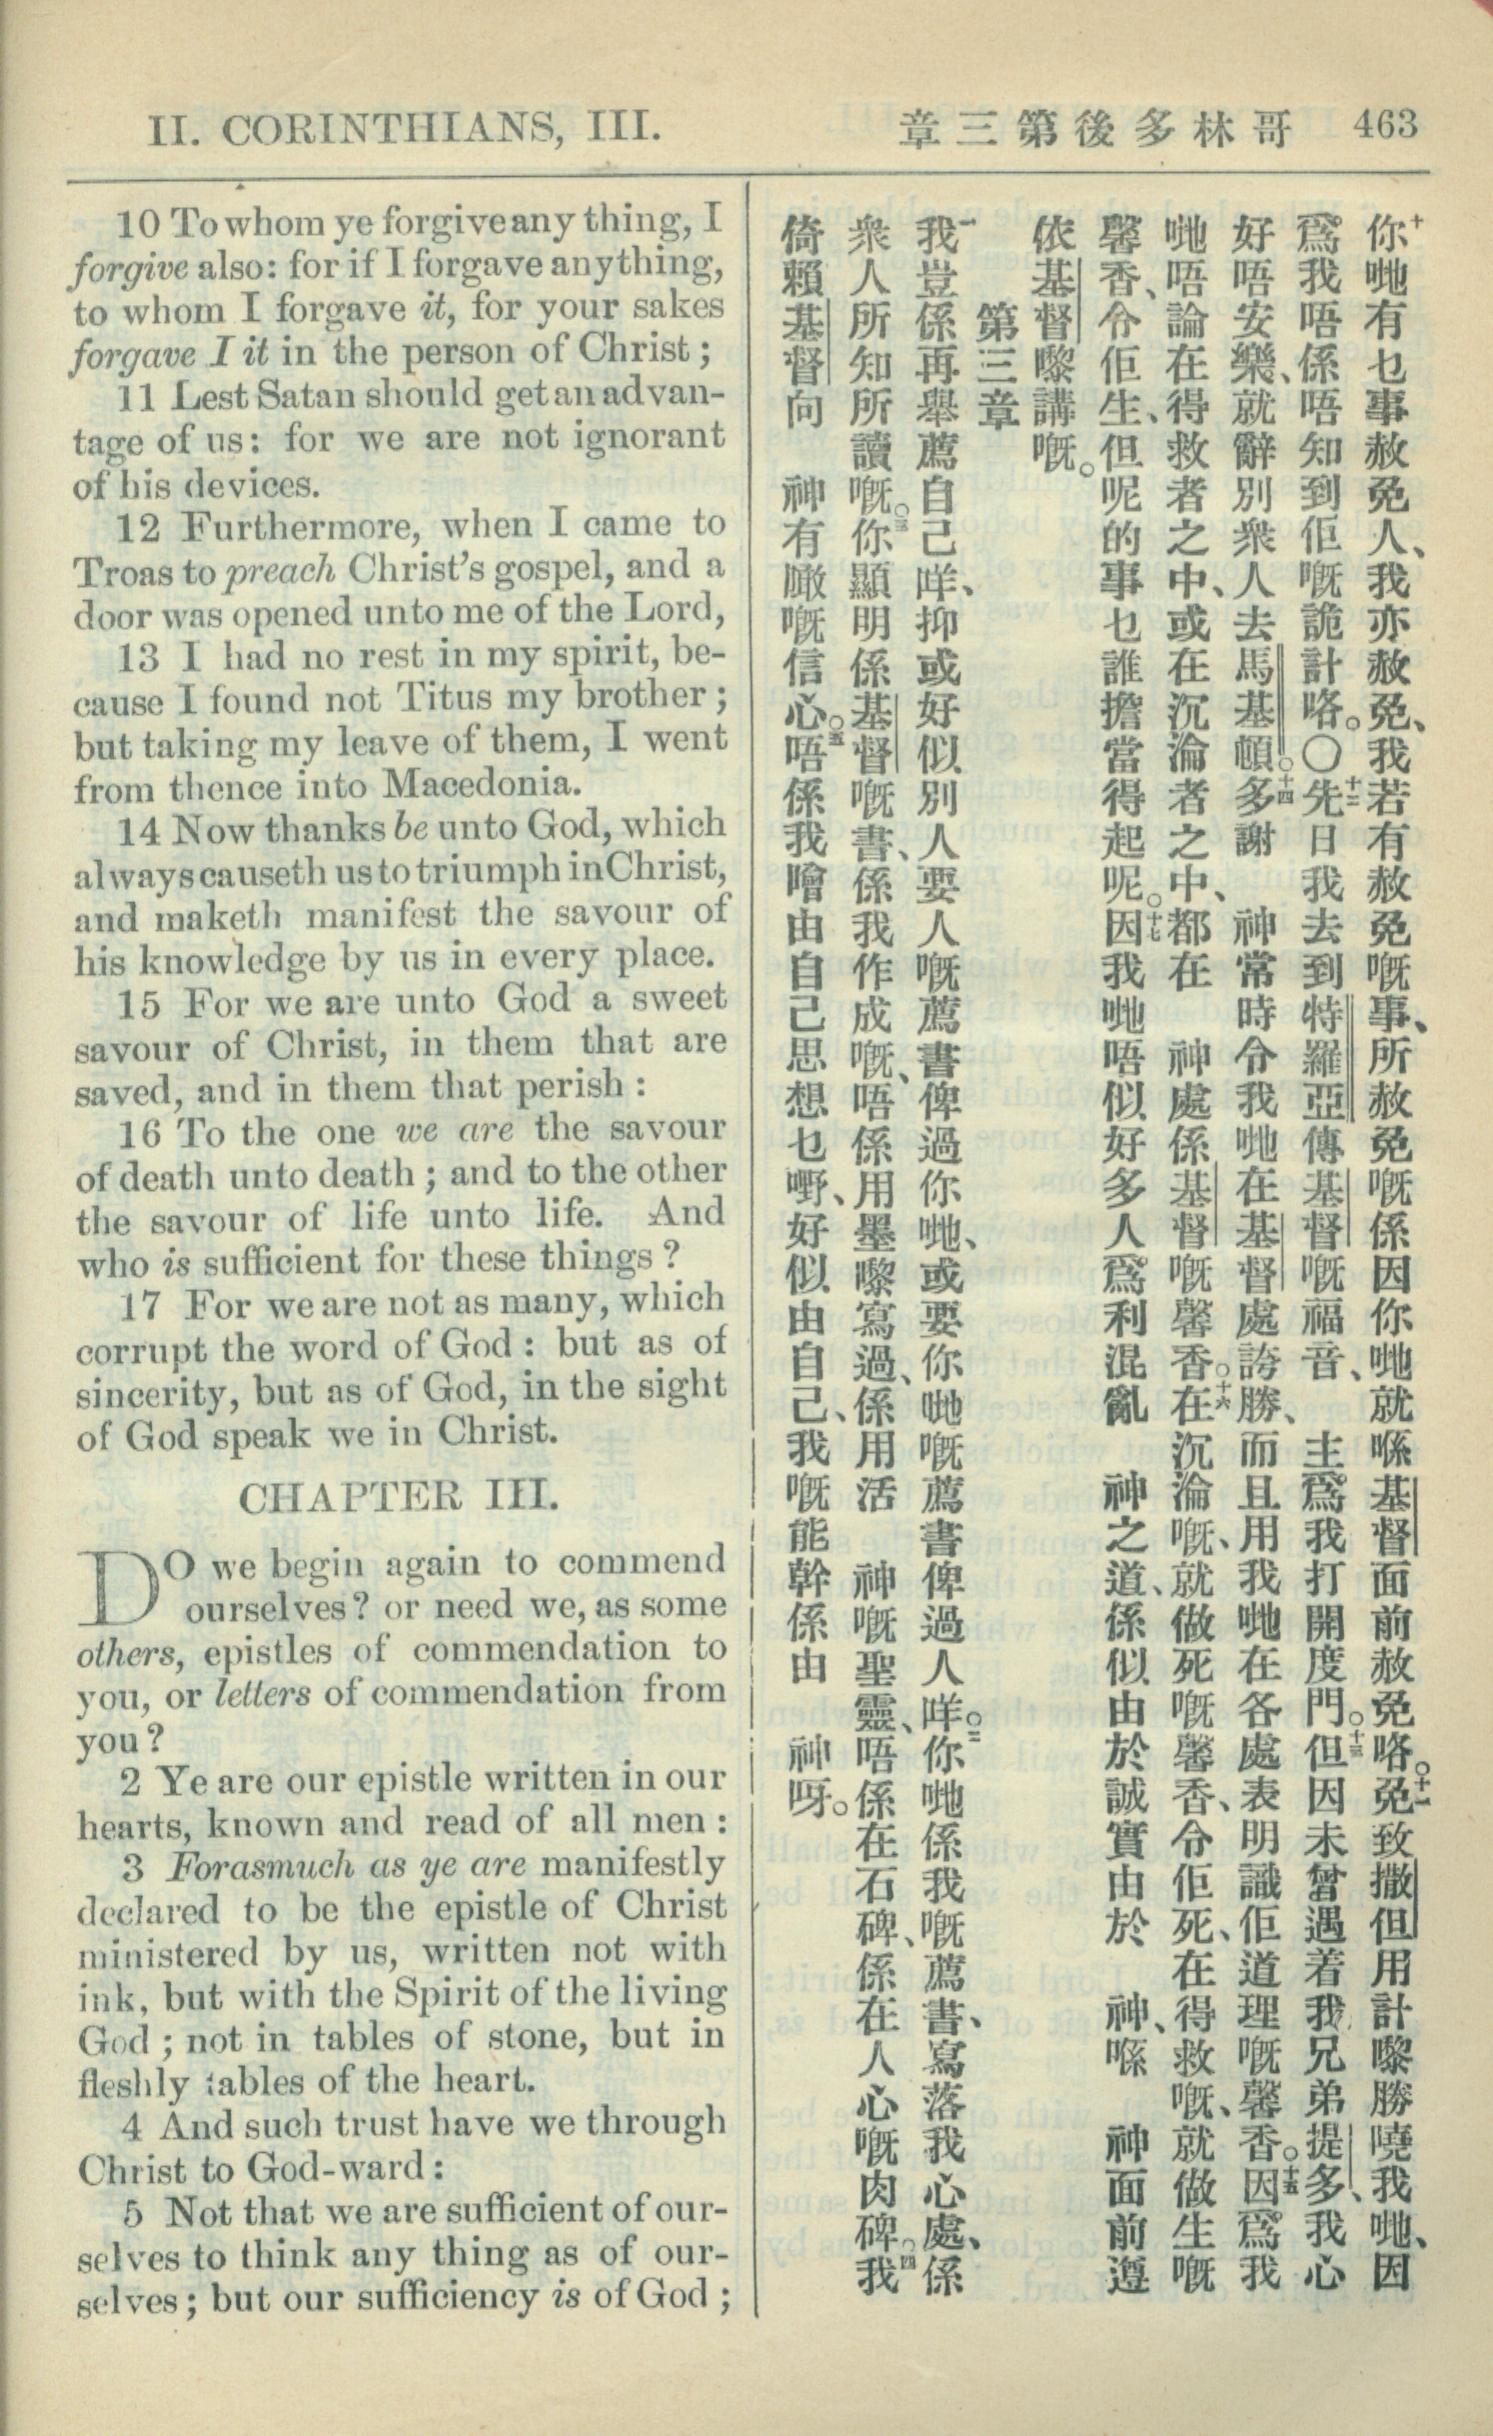 II. CORINTHIANS, III.
章三第後多林哥 463
10 To whom ye forgive any thing, I
forgive also: for if I forgave any thing,
to whom I forgave it, for your sakes
forgave I it in the person of Christ;
11 Lest Satan should get an advan-
tage of us: for we are not ignorant
of his devices.
12 Furthermore, when I came to
Troas to preach Christ's gospel, and a
door was opened unto me of the Lord,
13 I had no rest in my spirit, be-
cause I found not Titus my brother;
but taking my leave of them, I went
from thence into Macedonia.
14 Now thanks be unto God, which
always causeth us to triumph in Christ,
and maketh manifest the savour of
his knowledge by us in every place.
15 For we are unto God a sweet
savour of Christ, in them that are
saved, and in them that perish:
16 To the one we are the savour
of death unto death; and to the other
the savour of life unto life. And
who is sufficient for these things?
17 For we are not as many, which
corrupt the word of God: but as of
sincerity, but as of God, in the sight
of God speak we in Christ.
CHAPTER III.
DO we begin again to commend
ourselves? or need we, as some
others, epistles of commendation to
you, or letters of commendation from
you?
2 Ye are our epistle written in our
hearts, known and read of all men:
3 Forasmuch as ye are manifestly
declared to be the epistle of Christ
ministered by us, written not with
ink, but with the Spirit of the living
God; not in tables of stone, but in
fleshly tables of the heart.
4 And such trust have we through
Christ to God-ward:
5 Not that we are sufficient of our-
selves to think any thing as of our-
selves; but our sufficiency is of God;
十你哋有乜事赦免人、我亦赦免、我若有赦免嘅事、所赦免嘅係因你哋就喺基督面前赦免咯。十一免致撒但用計嚟勝嘵我哋、因
爲我唔係唔知到佢嘅詭計咯。〇十二先日我去到特羅亞傳基督嘅福音、主爲我打開度門。十三但因未曾遇着我兄弟提多、我心
好唔安樂、就辭別衆人去馬基頓。十四多謝神常時令我哋在基督處誇勝、而且用我哋在各處表明識佢道理嘅馨香。十五因爲我
哋唔論在得救者之中、或在沉淪者之中、都在神處係基督嘅馨香。十六在沉淪嘅、就做死嘅馨香、令佢死、在得救嘅、就做生嘅
馨香、令佢生、但呢的事乜誰擔當得起呢。十七因我哋唔似好多人爲利混亂神之道、係似由於誠實由於神、喺神面前遵
依基督嚟講嘅。
第三章
一我豈係再舉薦自己咩、抑或好似別人要人嘅薦書俾過你哋、或要你哋嘅薦書俾過人咩。二你哋係我嘅薦書、寫落我心處、係
衆人所知所讀嘅。三你顯明係基督嘅書、係我作成嘅、唔係用墨嚟寫過、係用活神嘅聖靈、唔係在石碑、係在人心嘅肉碑。四我
倚賴基督向神有噉嘅信心。五唔係我噲由自己思想乜嘢、好似由自己、我嘅能幹係由神呀。